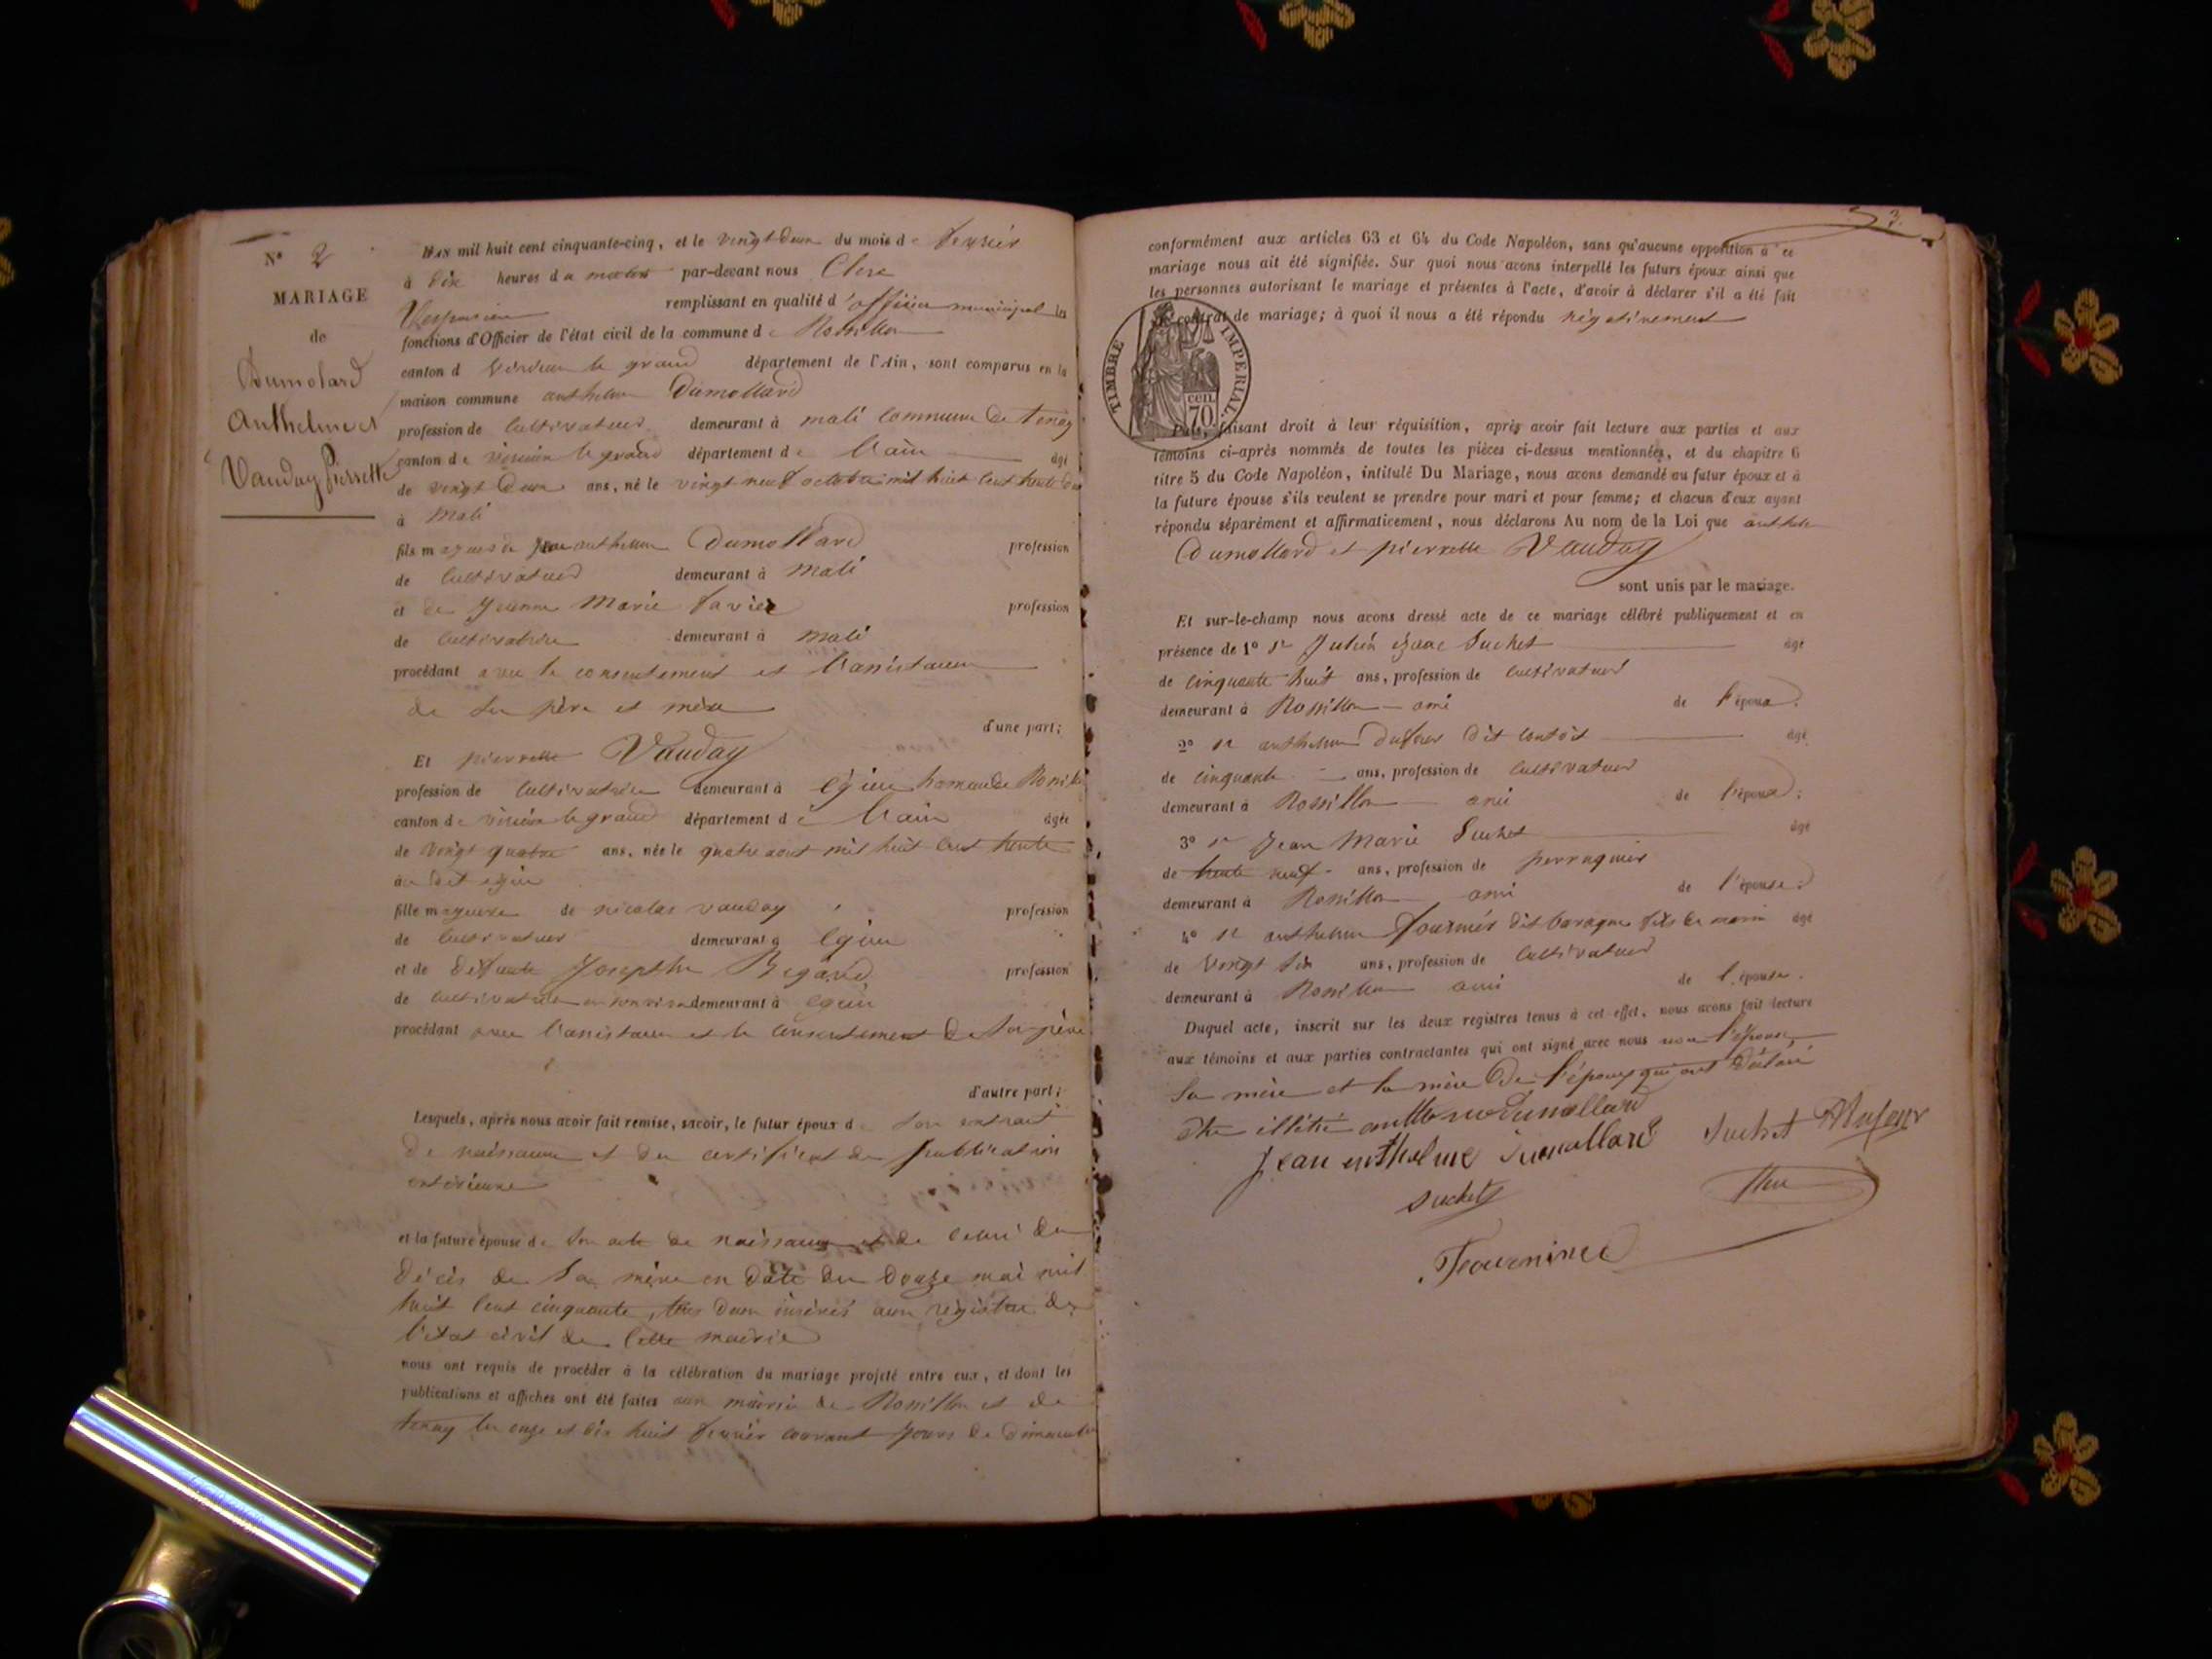 N° 2
MARIAGE
de
Dumolard
Anthelme et
Vauday Pierrette
L'AN mil huit cent cinquante-cinq, et le vingt deux du mois de fevrier
à dix heures du matin par-devant nous Clerc
Vespasien remplissant en qualité d'officier municipal les
fonctions d'Officier de l'état civil de la commune de Rossillon
canton d virieu le grand département de l'Ain, sont comparus en la
maison commune anthelme Dumollard
profession de cultivateur demeurant à mali commune de tenay
canton de virieu le grand département de l'ain âgé
de vingt deux ans, né le vingt neuf octobre mil huit cent trente deux
à mali
fils majeur de jean anthelme Dumollard profession
de cultivateur demeurant à mali
et de jeanne Marie favier profession
de cultivatrice demeurant à mali
procédant avec le consentement et l'assistance
de ses père et mère
d'une part;
Et pierrette Vauday
profession de cultivatrice demeurant à égieu hameau de
canton de virieu le grand département de l'ain âgée
de vingt quatre ans, née le quatre aout mil huit cent trente
au dit égieu
fille majeure de nicolas vauday profession
de cultivateur demeurant à égieu
et de défunte Josephte profession
de cultivatrice en son vivant demeurant à égieu
procédant avec l'assistance et le consentement de son père
d'autre part;
Lesquels, après nous avoir fait remise, savoir, le futur époux de son extrait
de naissance et du certificat de publication
extérieure
et la future épouse de son acte de naissance et de celui du
décès de sa mère en date du douze mai mil
huit cent cinquante, tous deux insérés aux registres de
l'état civil de cette mairie
nous ont requis de procéder à la célébration du mariage projeté entre eux, et dont les
publications et affiches ont été faites aux mairies de Rossillon et de
tenay les onze et dix huit fevrier courant jours de dimanche
3.
conformément aux articles 63 et 64 du Code Napoléon, sans qu'aucune opposition à ce
mariage nous ait été signifiée. Sur quoi nous avons interpellé les futurs époux ainsi que
les personnes autorisant le mariage et présentes à l'acte, d'avoir à déclarer s'il a été fait
contrat de mariage; à quoi il nous a été répondu négativement
TIMBRE IMPERIAL.
70 CEN.
Puis, faisant droit à leur réquisition, après avoir fait lecture aux parties et aux
témoins ci-après nommés de toutes les pièces ci-dessus mentionnées, et du chapitre 6
titre 5 du Code Napoléon, intitulé Du Mariage, nous avons demandé au futur époux et à
la future épouse s'ils veulent se prendre pour mari et pour femme; et chacun d'eux ayant
répondu séparément et affirmativement, nous déclarons Au nom de la Loi que anthelme
Dumollard et pierrette Vauday
sont unis par le mariage.
Et sur-le-champ nous avons dressé acte de ce mariage célébré publiquement et en
présence de 1° sr Julien izaac Suchet âgé
de cinquante huit ans, profession de cultivateur
demeurant à Rossillon ami de l'époux.
2° sr anthelme Dufour dit contois âgé
de cinquante ans, profession de cultivateur
demeurant à Rossillon ami de l'époux;
3° sr Jean Marie Suchet âgé
de trente neuf ans, profession de perruquier
demeurant à Rossillon ami de l'épouse;
4° sr anthelme fournier dit fils âgé
de vingt six ans, profession de cultivateur
demeurant à Rossillon ami de l'épouse.
Duquel acte, inscrit sur les deux registres tenus à cet effet, nous avons fait lecture
aux témoins et aux parties contractantes qui ont signé avec nous non l'épouse
sa mère et la mère de l'époux qui ont déclaré
être illétré anthelme dumollard
Jean enthelme dumollard Suchet Dufour
Suchet